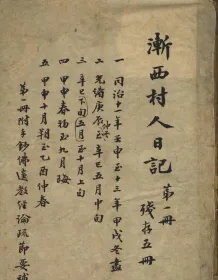 漸西村人日記 第一冊
殘存五冊
一 同治十一年壬申至十三年甲戌冬盡
二 光緒庚辰仲冬至辛巳五月中旬
三 辛巳下旬五月至十月上旬
四 甲申春至九月晦
五 甲申十月朔至乙酉仲春
第一冊附手鈔佛遺教經論疏節要補